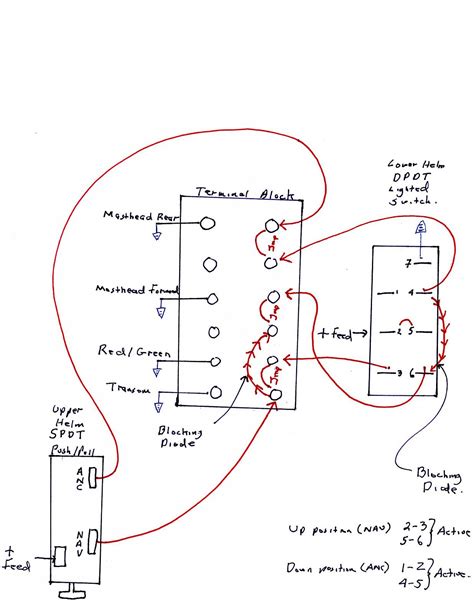 Lower Helm
DPDT
Lighted
Switch.
Terminal Block
Masthead Rear
Jmp
7
Masthead Forward
1 4
Jmp
+ feed
2 5
Red/Green
Jmp
3 6
Transom
Blocking
Diode
Upper
Helm
SPDT
Push/Pull
ANC
NAV
+
Feed
Blocking
Diode.
Up position (NAV) 2-3
5-6
Active
Down position (ANC) 1-2
4-5
Active.